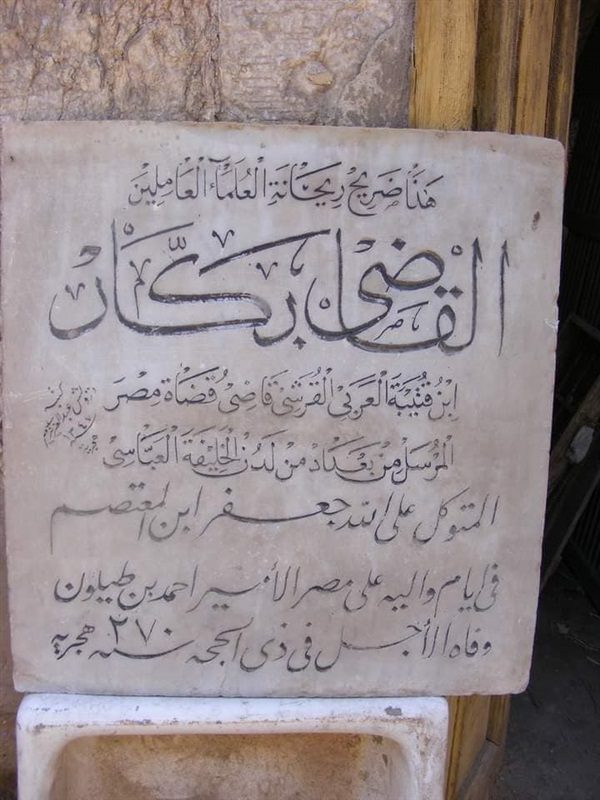 هَذَا ضَرِيحُ رِيحَانَةِ الْعُلَمَآءِ الْعَامِلِينَ
القاضى بكَّار
ابْنُ قُتَيْبَةَ الْعَرَبِى الْقُرَشِى قَاضِى قُضَاة مِصْرَ
الْمُرْسَل مِنْ بَغْدَادْ مِنْ لَدُنِ الْخَلِيفَة الْعَبَّاسِى
المتوكل على الله جعفر ابن المعتصم
فى ايام واليه على مصر الأمير احمد بن طيلون
وفاه الأجل فى ذى الحجه سنه ٢٧٠ هجريه